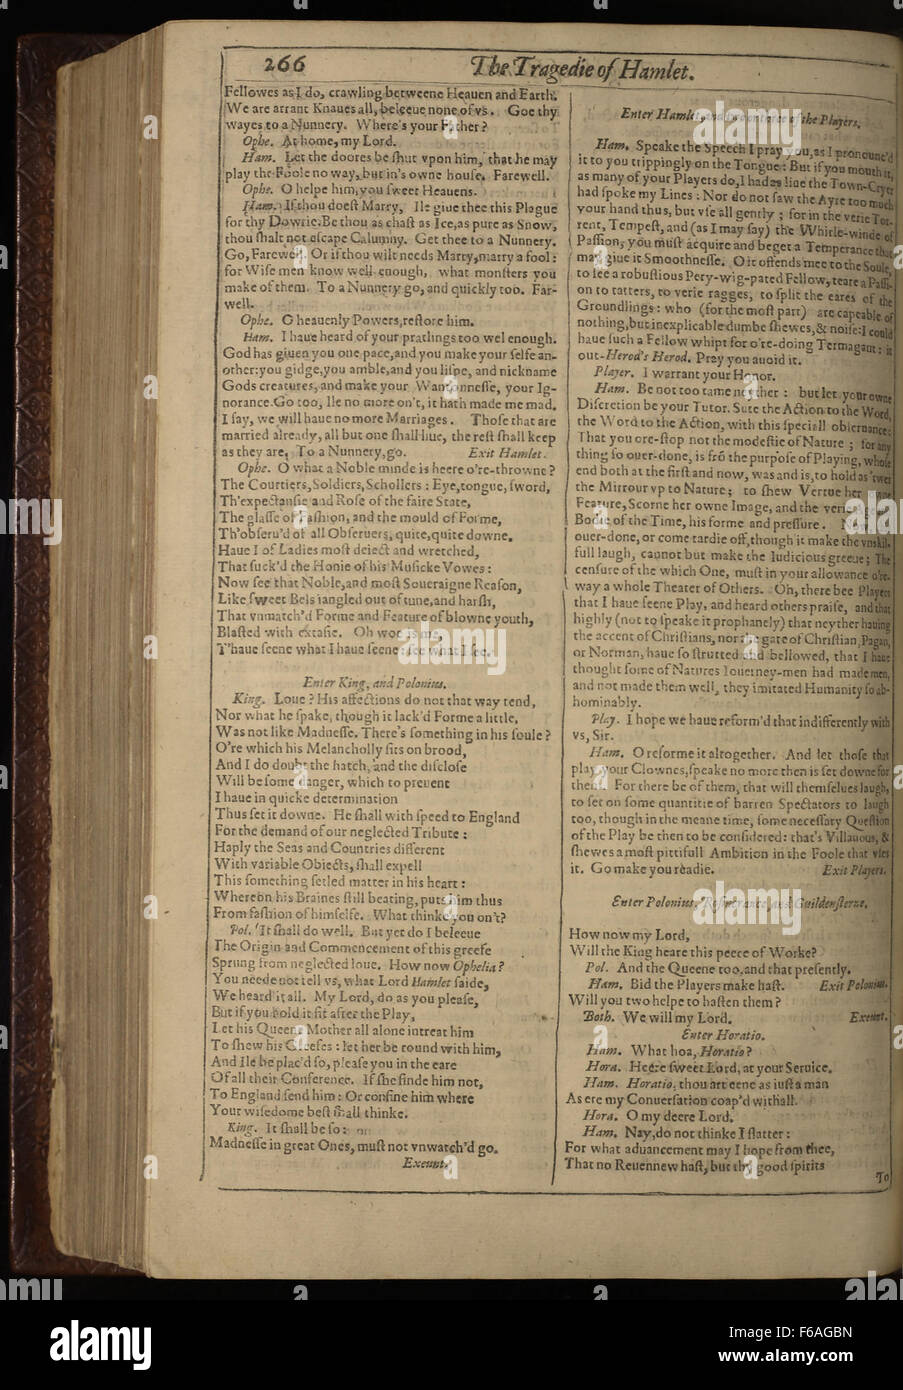 266
The Tragedie of Hamlet.
Fellowes as I do, crawling betweene Heauen and Earth.
We are arrant Knaues all, beleeue none of vs. Goe thy
wayes to a Nunnery. Where's your Father?
Ophe. At home, my Lord.
Ham. Let the doores be ſhut vpon him, that he may
play the Foole no way, but in's owne houſe. Farewell.
Ophe. O helpe him, you ſweet Heauens.
Ham. If thou doeſt Marry, Ile giue thee this Plague
for thy Dowrie. Be thou as chaſt as Ice, as pure as Snow,
thou ſhalt not eſcape Calumny. Get thee to a Nunnery.
Go, Farewell. Or if thou wilt needs Marry, marry a fool:
for Wiſe men know well enough, what monſters you
make of them. To a Nunnery go, and quickly too. Far-
well.
Ophe. O heauenly Powers, reſtore him.
Ham. I haue heard of your pratlings too wel enough.
God has giuen you one pace, and you make your ſelfe an-
other: you gidge, you amble, and you liſpe, and nickname
Gods creatures, and make your Wantonneſſe, your Ig-
norance. Go too, Ile no more on't, it hath made me mad.
I ſay, we will haue no more Marriages. Thoſe that are
married already, all but one ſhall liue, the reſt ſhall keep
as they are. To a Nunnery, go. Exit Hamlet.
Ophe. O what a Noble minde is heere o're-throwne?
The Courtiers, Soldiers, Schollers: Eye, tongue, ſword,
Th'expectanſie and Roſe of the faire State,
The glaſſe of Faſhion, and the mould of Forme,
Th'obſeru'd of all Obſeruers, quite, quite downe.
Haue I of Ladies moſt deiect and wretched,
That ſuck'd the Honie of his Muſicke Vowes:
Now ſee that Noble, and moſt Soueraigne Reaſon,
Like ſweet Bels iangled out of tune, and harſh,
That vnmatch'd Forme and Feature of blowne youth,
Blaſted with extaſie. Oh woe is me,
T'haue ſeene what I haue ſeene: ſee what I ſee.
Enter King, and Polonius.
King. Loue? His affections do not that way tend,
Nor what he ſpake, though it lack'd Forme a little,
Was not like Madneſſe. There's ſomething in his ſoule?
O're which his Melancholly ſits on brood,
And I do doubt the hatch, and the diſcloſe
Will be ſome danger, which to preuent
I haue in quicke determination
Thus ſet it downe. He ſhall with ſpeed to England
For the demand of our neglected Tribute:
Haply the Seas and Countries different
With variable Obiects, ſhall expell
This ſomething ſetled matter in his heart:
Whereon his Braines ſtill beating, puts him thus
From faſhion of himſelfe. What thinke you on't?
Pol. It ſhall do well. But yet do I beleeue
The Origin and Commencement of this greefe
Sprung from neglected loue. How now Ophelia?
You neede not tell vs, what Lord Hamlet ſaide,
We heard it all. My Lord, do as you pleaſe,
But if you hold it fit after the Play,
Let his Queene Mother all alone intreat him
To ſhew his Greefes: let her be round with him,
And Ile be plac'd ſo, pleaſe you in the eare
Of all their Conference. If ſhe finde him not,
To England ſend him: Or confine him where
Your wiſedome beſt ſhall thinke.
King. It ſhall be ſo:
Madneſſe in great Ones, muſt not vnwatch'd go.
Exeunt.
Enter Hamlet, and two or three of the Players.
Ham. Speake the Speech I pray you, as I pronounc'd
it to you trippingly on the Tongue: But if you mouth it,
as many of your Players do, I had as liue the Town-Cryer
had ſpoke my Lines: Nor do not ſaw the Ayre too much
your hand thus, but vſe all gently; for in the verie Tor-
rent, Tempeſt, and (as I may ſay) the Whirle-winde of
Paſſion, you muſt acquire and beget a Temperance that
may giue it Smoothneſſe. O it offends mee to the Soule,
to ſee a robuſtious Pery-wig-pated Fellow, teare a Paſſi-
on to tatters, to verie ragges, to ſplit the eares of the
Groundlings: who (for the moſt part) are capeable of
nothing, but inexplicable dumbe ſhewes, & noiſe: I could
haue ſuch a Fellow whipt for o're-doing Termagant: it
out-Herod's Herod. Pray you auoid it.
Player. I warrant your Honor.
Ham. Be not too tame neyther: but let your owne
Diſcretion be your Tutor. Sute the Action to the Word,
the Word to the Action, with this ſpeciall obſeruance:
That you ore-ſtop not the modeſtie of Nature; for any
thing ſo ouer-done, is frō the purpoſe of Playing, whoſe
end both at the firſt and now, was and is, to hold as 'twer
the Mirrour vp to Nature; to ſhew Vertue her owne
Feature, Scorne her owne Image, and the verie Age and
Bodie of the Time, his forme and preſſure. Now, this
ouer-done, or come tardie off, though it make the vnskil-
full laugh, cannot but make the Iudicious greeue; The
cenſure of the which One, muſt in your allowance o're-
way a whole Theater of Others. Oh, there bee Players
that I haue ſeene Play, and heard others praiſe, and that
highly (not to ſpeake it prophanely) that neyther hauing
the accent of Chriſtians, nor the gate of Chriſtian, Pagan,
or Norman, haue ſo ſtrutted and bellowed, that I haue
thought ſome of Natures Iouerney-men had made men,
and not made them well, they imitated Humanity ſo ab-
hominably.
Play. I hope we haue reform'd that indifferently with
vs, Sir.
Ham. O reforme it altogether. And let thoſe that
play your Clownes, ſpeake no more then is ſet downe for
them. For there be of them, that will themſelues laugh,
to ſet on ſome quantitie of barren Spectators to laugh
too, though in the meane time, ſome neceſſary Queſtion
of the Play be then to be conſidered: that's Villanous, &
ſhewes a moſt pittifull Ambition in the Foole that vſes
it. Go make you readie. Exit Players.
Enter Polonius, Roſincrance, and Guildenſterne.
How now my Lord,
Will the King heare this peece of Worke?
Pol. And the Queene too, and that preſently.
Ham. Bid the Players make haſt. Exit Polonius.
Will you two helpe to haſten them?
Both. We will my Lord. Exeunt.
Enter Horatio.
Ham. What hoa, Horatio?
Hora. Heere ſweet Lord, at your Seruice.
Ham. Horatio, thou art eene as iuſt a man
As ere my Conuerſation coap'd withall.
Hora. O my deere Lord.
Ham. Nay, do not thinke I flatter:
For what aduancement may I hope from thee,
That no Reuennew haſt, but thy good ſpirits
To
alamy
Image ID: F6AGBN
www.alamy.com